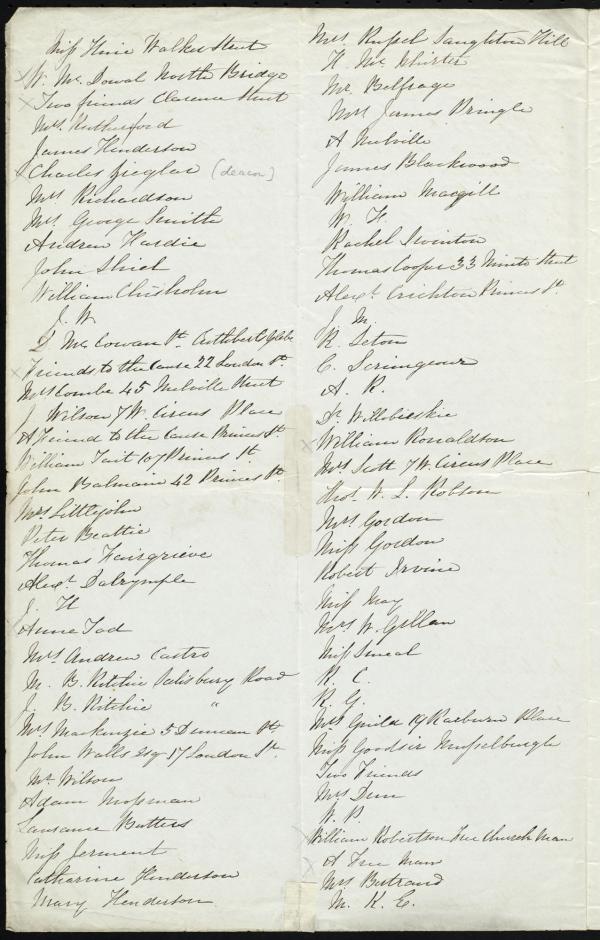 Miss Hume Walker Street
W. Mc. Dowal North Bridge
Two friends Clarence Street
Mrs. Rutherford
James Henderson
Charles Zieglar (deacon)
Mrs Richardson
Mrs George Smith
Andrew Hardie
John Shiel
William Chisholm
J. W.
D Mc Cowan St. Cuthberts Glebe
Friends to the Cause 22 London St.
Mrs Combe 45 Melville Street
J. Wilson 7 W. Circus Place
A Friend to the Cause Princes St.
William Tait 107 Princes St.
John Balmain 42 Princes St.
Mrs Littlejohn
Peter Beattie
Thomas Fairgrieve
Alexr. Dalrymple
J. H
Anne Tod
Mrs Andrew Castro
M. B. Ritchie Salisbury Road
J. B. Ritchie "
Mrs Mackenzie 5 Duncan St.
John Walls Esq 17 London St.
Mr. Wilson
Adam Mossman
Lausanne Butters
Miss Jerment
Catharine Henderson
Mary Henderson
Mrs Russel Saughton Hill
H. Mc. Whirter
Mr. Belfrage
Mrs James Pringle
A Melville
James Blackwood
William Macgill
W. H.
Rachel Swinton
Thomas Cooper 33 Minto Street
Alexr. Crichton Princes St.
J. M.
R. Seton
C. Scrimgeour
A. R.
Dr. Willobieskie
William Ronaldson
Mrs Scott 7 W. Circus Place
Thos. W. L. Robson
Mrs Gordon
Miss Gordon
Robert Irvine
Miss May
Mrs W. Gillan
Miss Smeal
R. C.
R. G.
Mrs Guild 19 Raeburn Place
Miss Goodsir Musselburgh
Two Friends
Mrs Dun
W. P.
William Robertson Free Church Man
A Free Man
Mrs Bertrand
M. K. E.